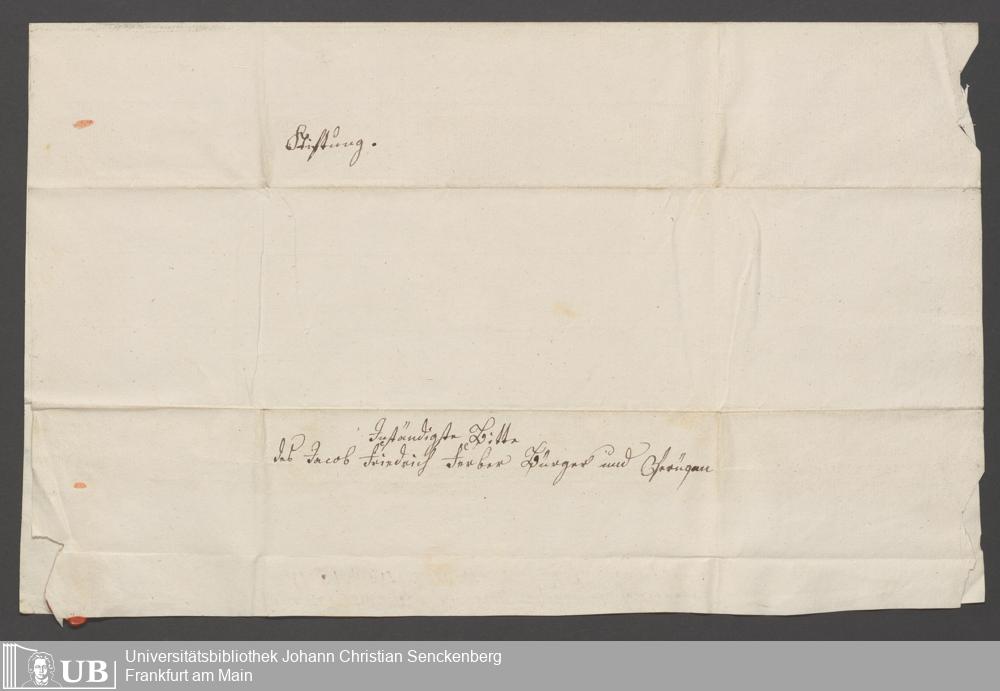 Stiftung.
Inständigste Bitte
des Jacob Friedrich Ferber Bürger und
UB
Universitätsbibliothek Johann Christian Senckenberg
Frankfurt am Main